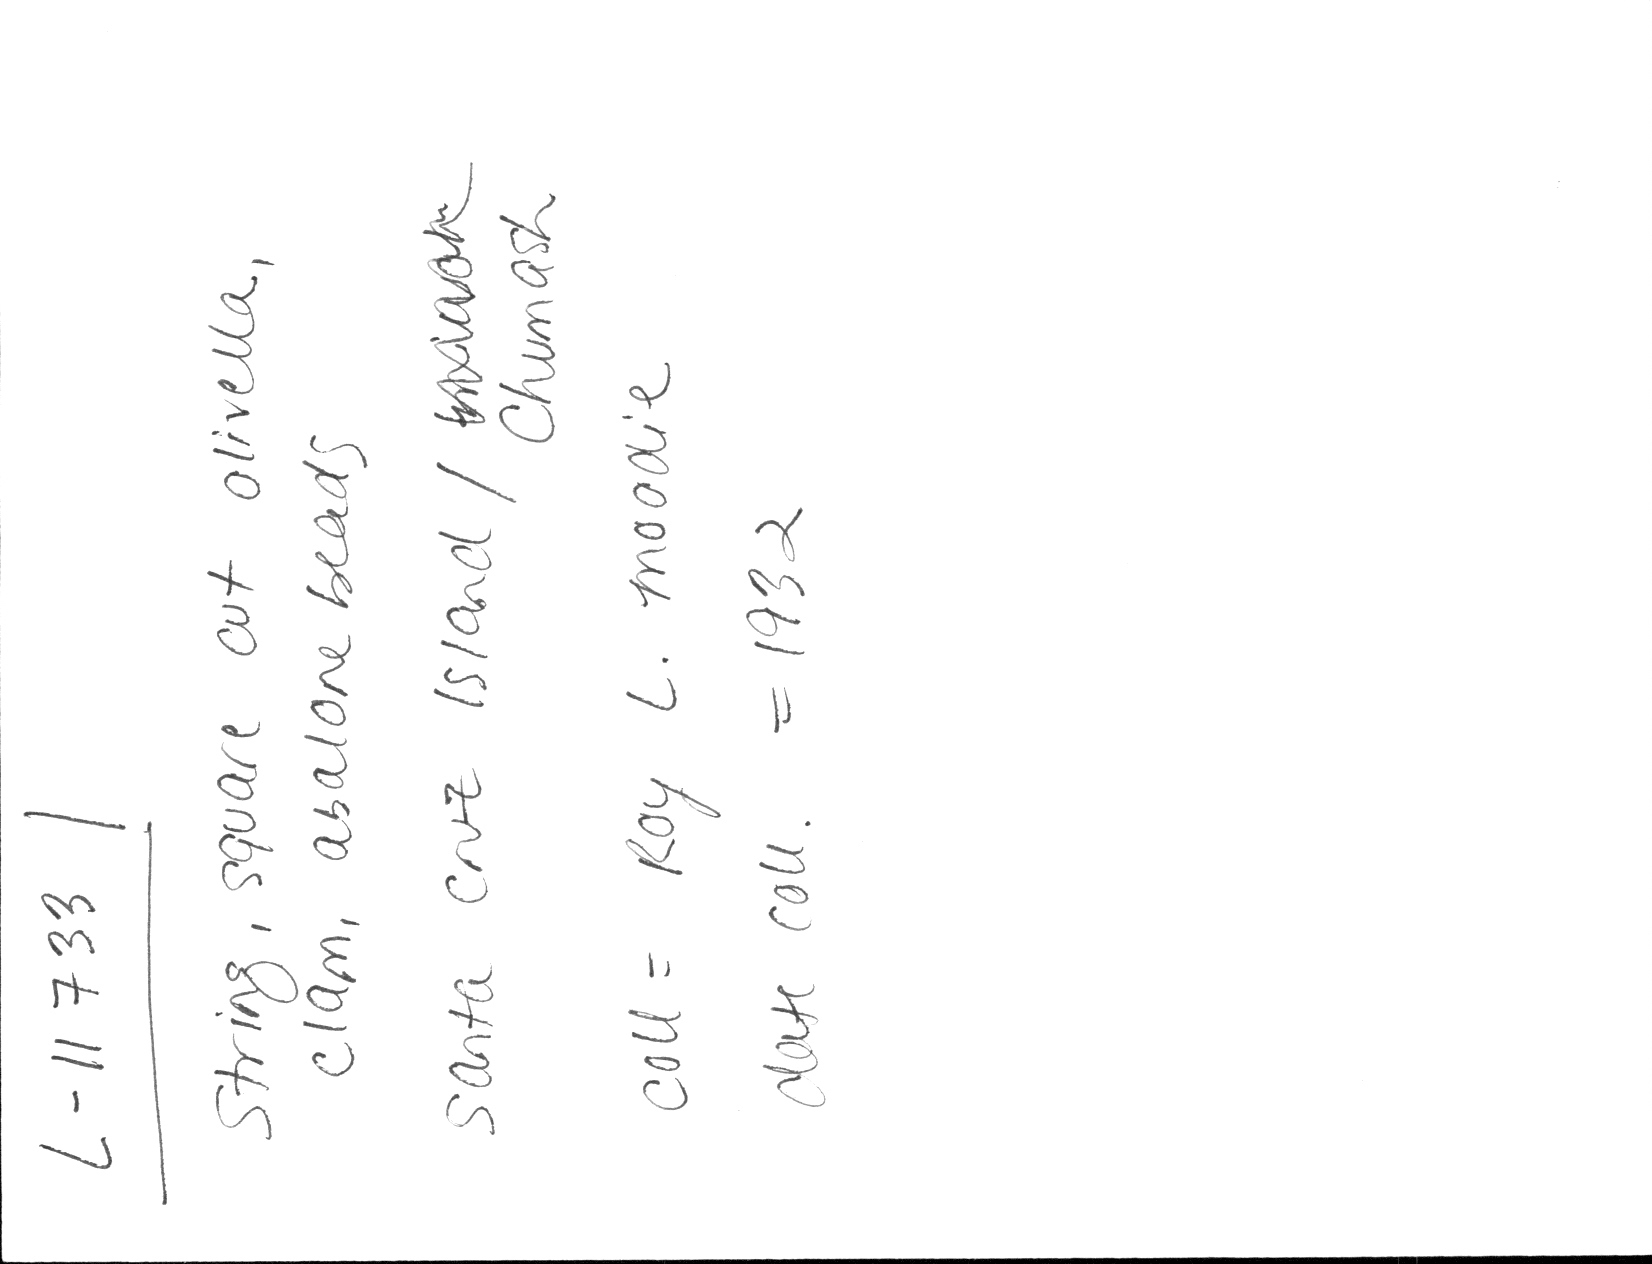 L-11733
String, square cut olivella,
clam, abalone beads
Santa Cruz Island /
Chumash
coll = Roy L. Moodie
date coll. = 1932